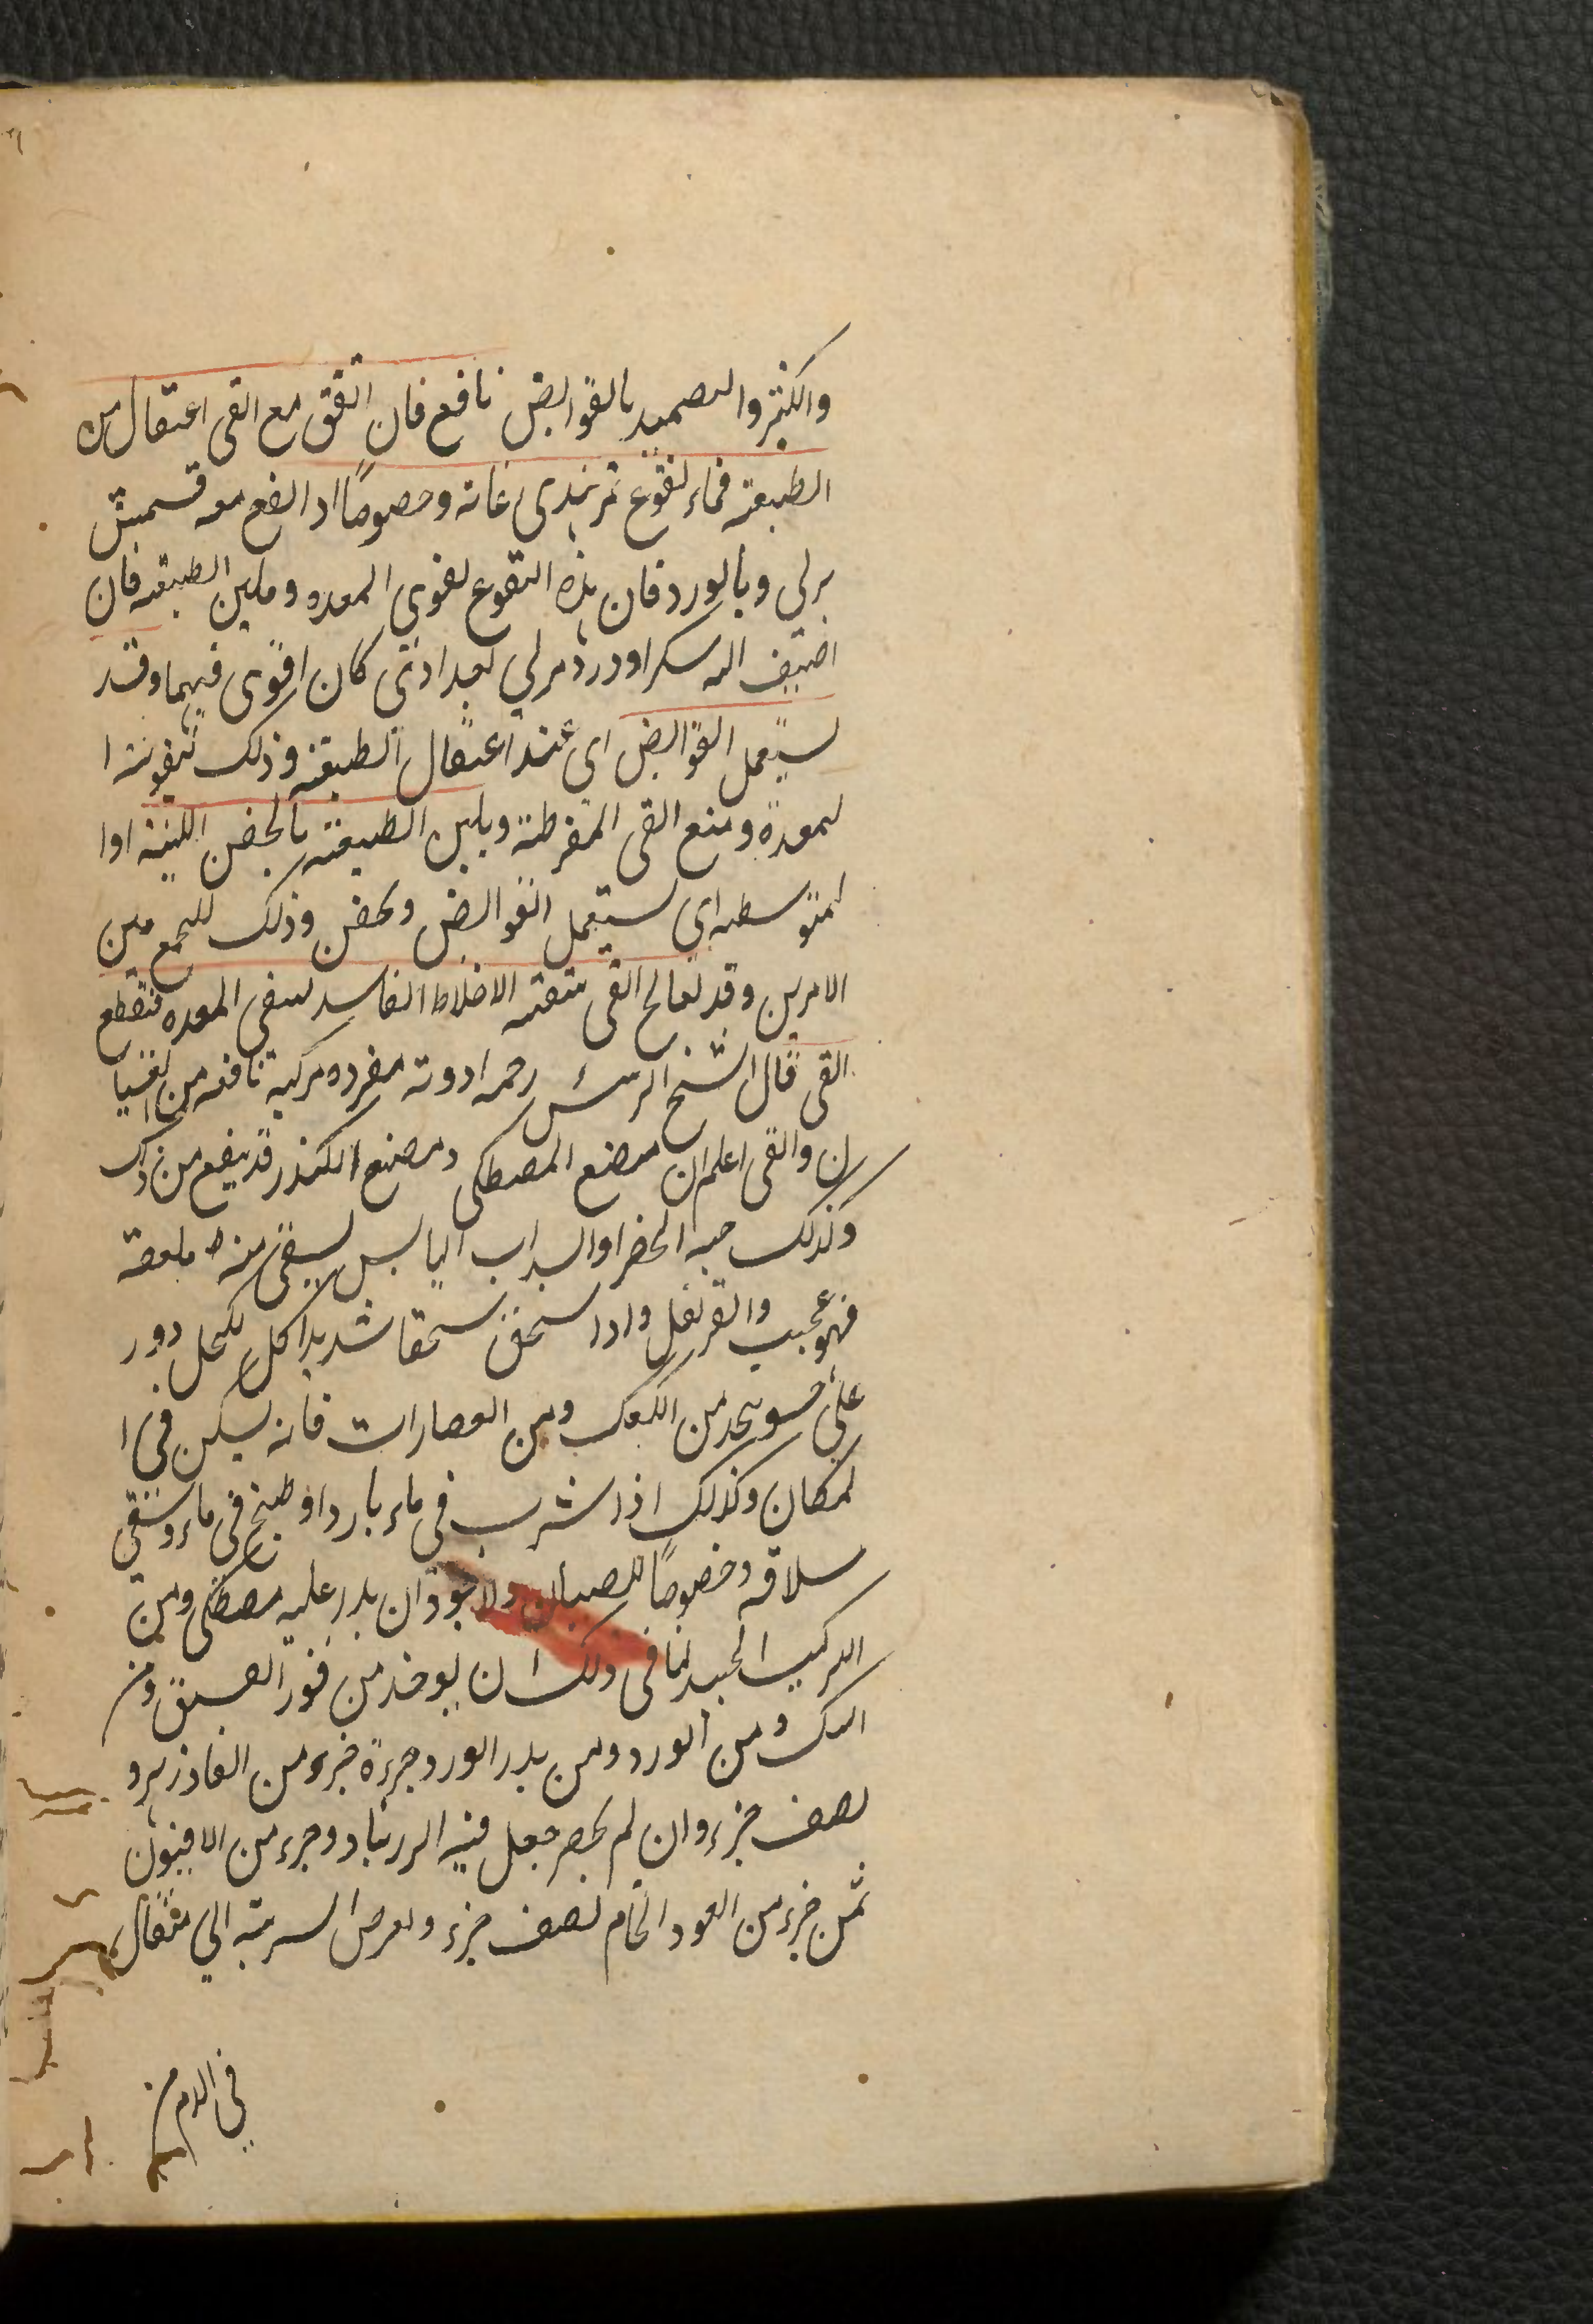 والكثر والتضميد بالقوابض نافع فان اتفق مع القى اعتقال من
الطبيعة فماء نقوع تمرهندى غاية وخصوصا اذا نقع معه قسمش
برلى وبالورد فان هذه النقوع لقوى المعده وملين الطبيعه فان
اضيف اليه سكر اوورد مرلي بغدادى كان اقوى فيهما وقد
يستعمل القوابض اى عند اعتقال الطبيعة وذلك لتقوية ا
لمعدة ومنع القى المفرطة ويلين الطبيعة بالحقن اللينة اوا
لمتوسطه اى يستعمل القوابض وبحقن وذلك للجمع بين
الامرين وقد يعالج القى بتنقية الاخلاط الفاسد لينقى المعده فتقطع
القى قال الشيخ الرئيس رحمه ادوية مفرده مركبة نافعه من الغثيا
ن والقى اعلم ان مضغ المصطكى ومضغ الكندر قد ينفع من ذلك
وكذلك حبه الخضرا والسداب اليابس يسقى منه ملعقة
فهو عجيب والقرنفل واذا سحق سحقا شديدا كالكحل وذر
على حسو يتخذ من الكعك ومن العصارات فانه يسكن فى ا
لمكان وكذلك اذا شرب فى ماء بارد او طبخ فى ماء وسقى
سلاقه وخصوصا للصبيان ولاجود ان يذر عليه مصطكى ومن
التركيب الجيد لنا فى ذلك ان يوخذ من قشور الفستق ومن
السك ومن الورد ومن بذر الورد جزءة جزء ومن الفاذزهر و
نصف جزء وان لم يحضر جعل فيه الزرنباد وجزء من الافيون
ثمن جزء من العود الخام نصف جزء ويقرص الشربة الي مثقال
في الدم من